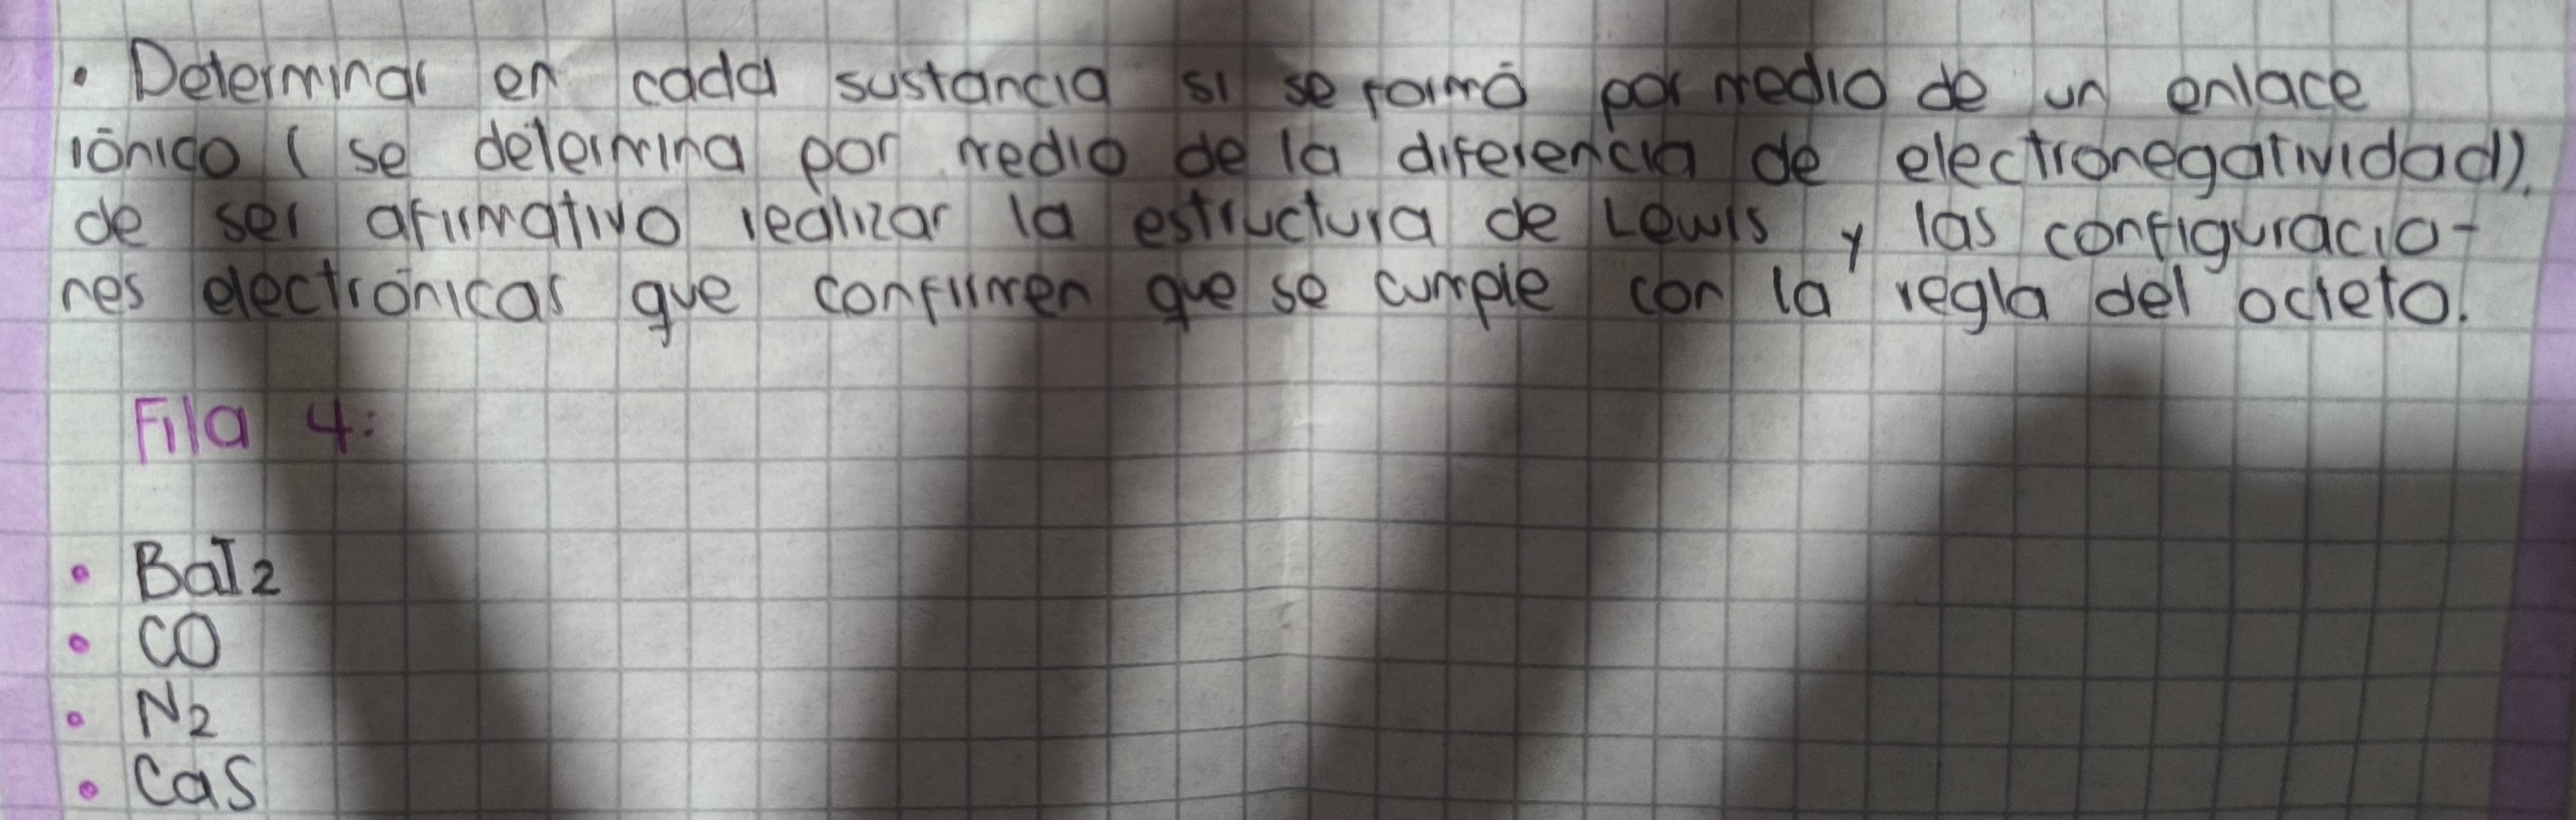 • Determinar en cada sustancia si se formó por medio de un enlace
iónico ( se determina por medio de la diferencia de electronegatividad).
de ser afirmativo realizar la estructura de Lewis y las configuracio-
nes electrónicas que confirmen que se cumple con la regla del octeto.
Fila 4:
• BaI2
• CO
• N2
• CaS